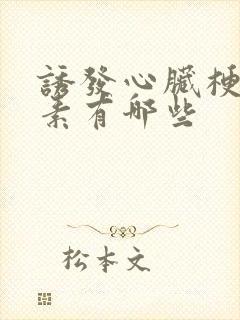 誘發心臟梗
素有哪些
松本文